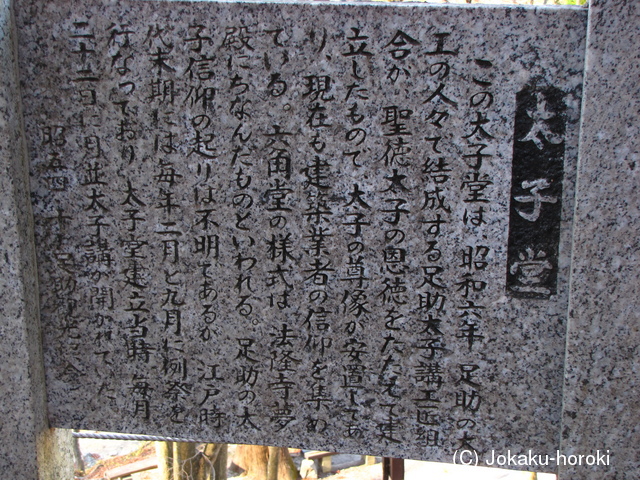 太子堂
この太子堂は、昭和六年、足助の大
工の人々で結成する足助太子講工匠組
合が、聖徳太子の恩徳をたたえて建
立したもので、太子の尊像が安置してあ
り、現在も建築業者の信仰を集め
ている。六角堂の様式は、法隆寺夢
殿にちなんだものといわれる。足助の太
子信仰の起りは不明であるが、江戸時
代末期には、毎年二月と九月に例祭を
行なっており、太子堂建立当時、毎月
二十二日に月並太子講が開かれていた。
昭五四
足助
(C) Jokaku-horoki